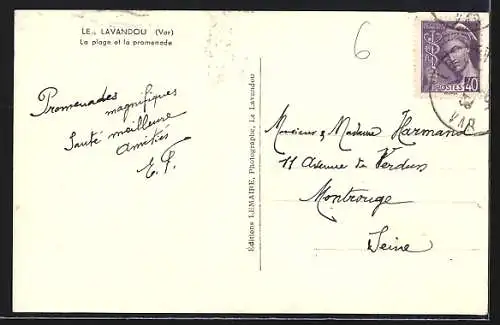 LE LAVANDOU (Var)
La plage et la promenade
6
POSTES 40
VAR
Promenades
magnifiques
Santé meilleure
amitiés
E. P.
Éditions LEMAIRE, Photographe, Le Lavandou
Monsieur & Madame Harmand
11 Avenue de Verdun
Montrouge
Seine